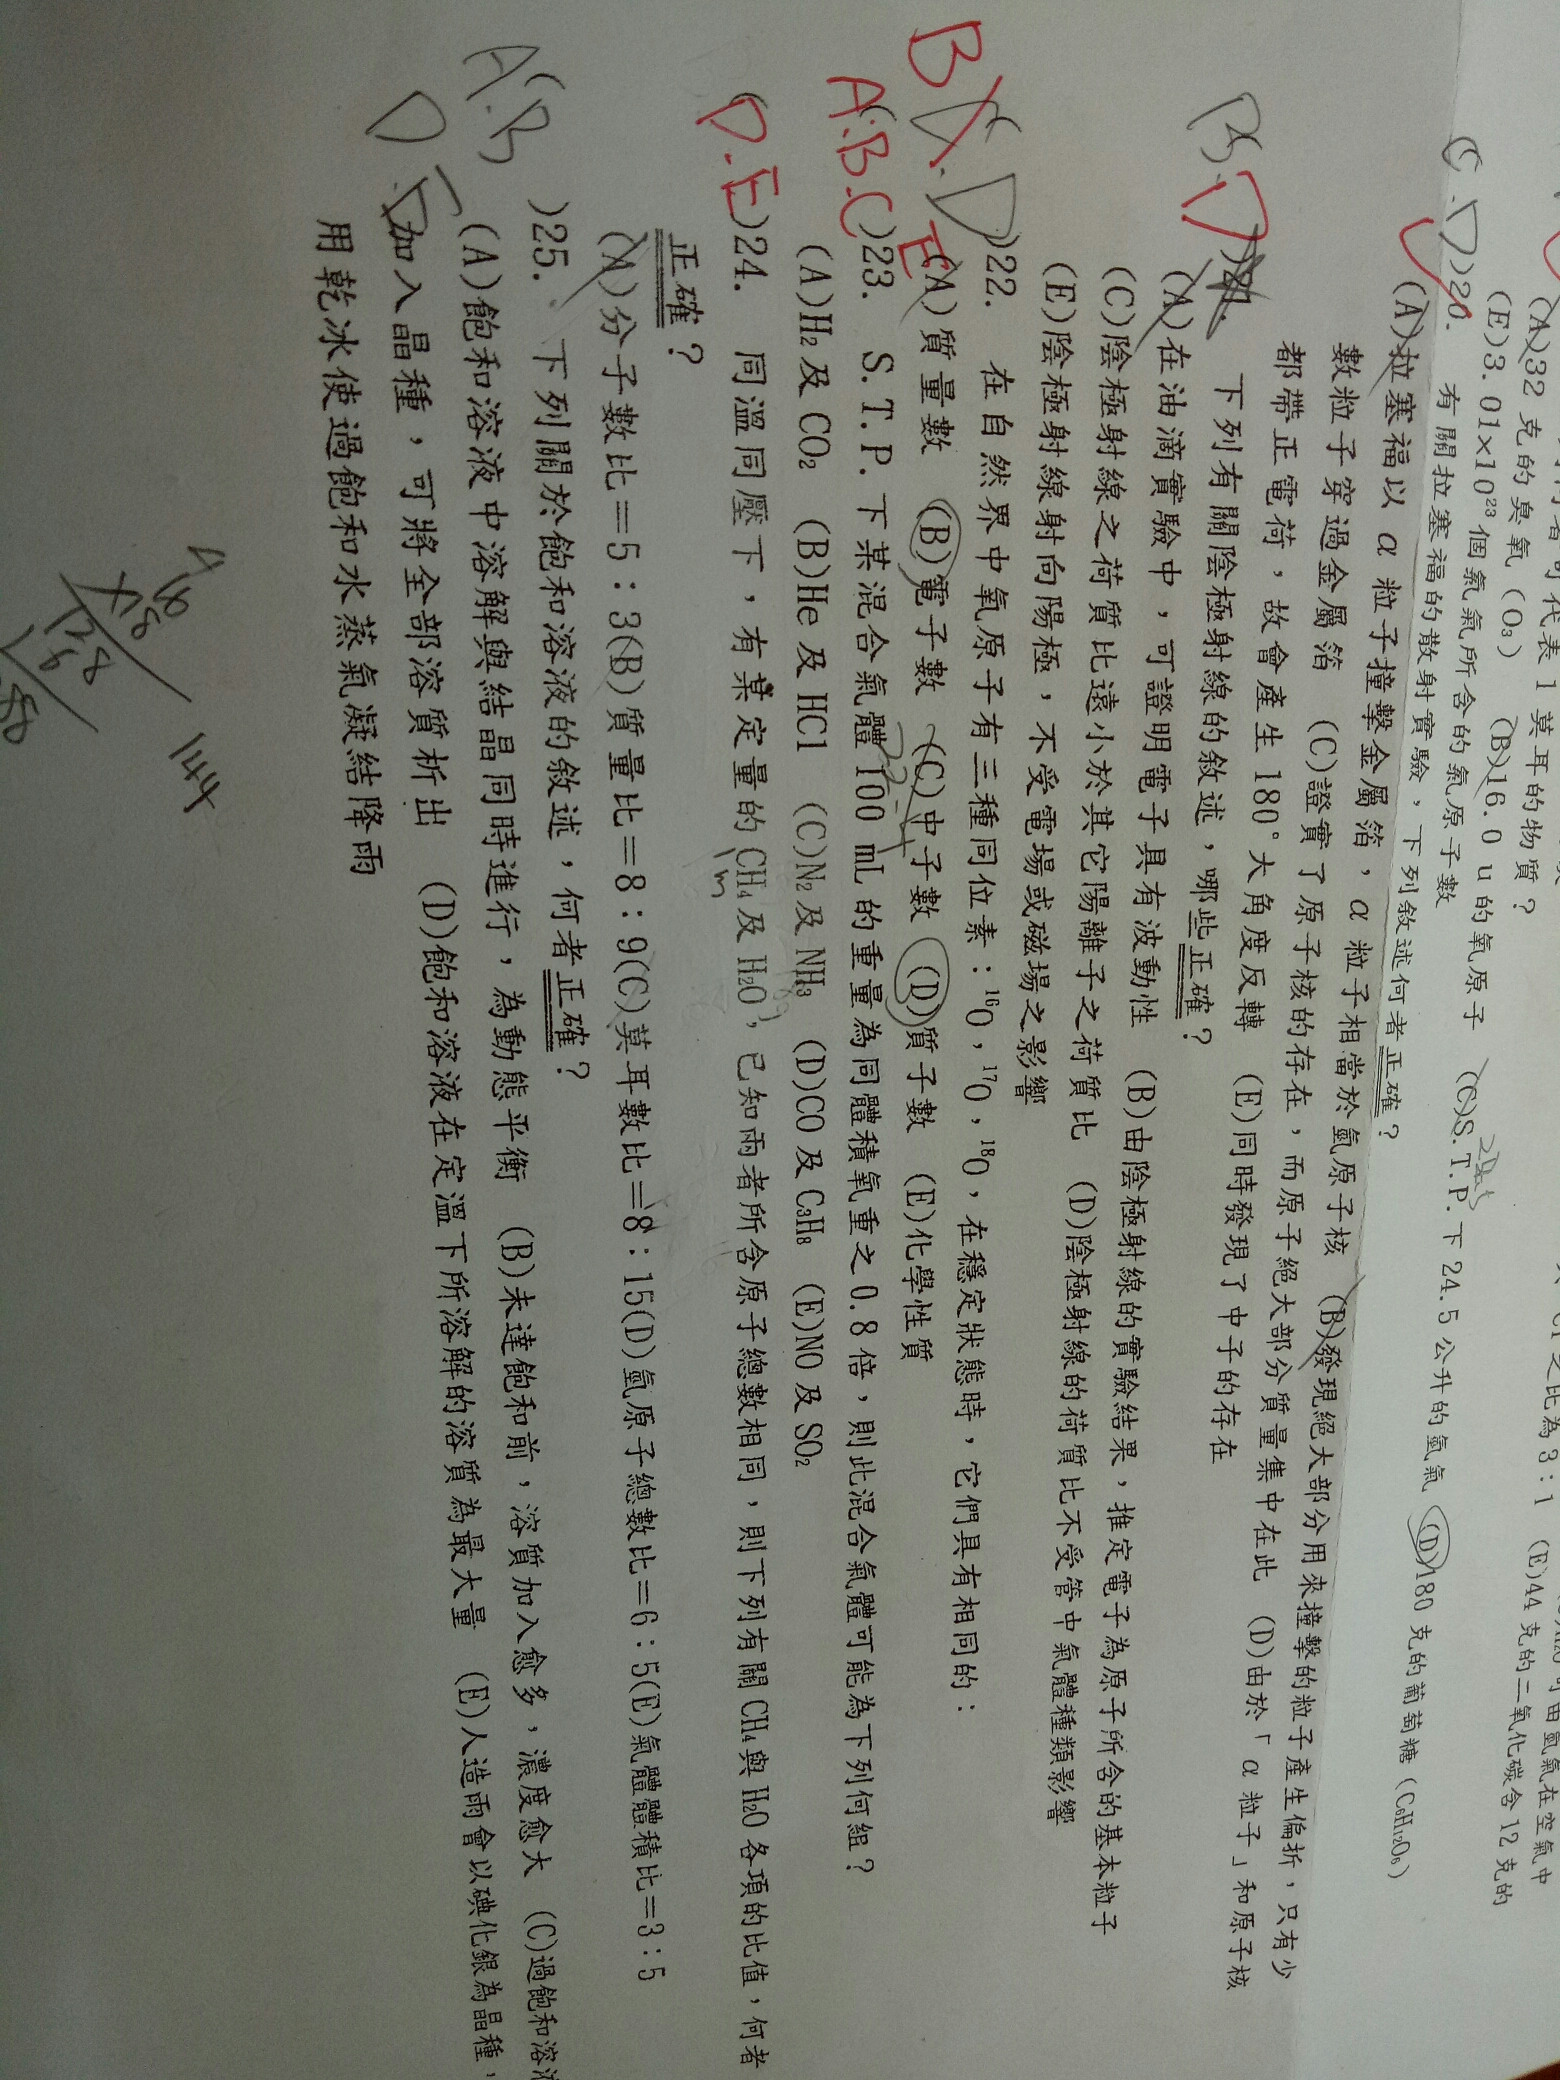 (A)32 克的臭氧（O₃） (B)16.0 u 的氧原子 (C)S.T.P.下 24.5 公升的氫氣 (D)180 克的葡萄糖（C₆H₁₂O₆）
(E)3.01×10²³個氯氣所含的氯原子數
C.D)20. 有關拉塞福的散射實驗，下列敘述何者正確？
(A)拉塞福以 α 粒子撞擊金屬箔，α 粒子相當於氫原子核 (B)發現絕大部分用來撞擊的粒子產生偏折，只有少
數粒子穿過金屬箔 (C)證實了原子核的存在，而原子絕大部分質量集中在此 (D)由於「α 粒子」和原子核
都帶正電荷，故會產生 180°大角度反轉 (E)同時發現了中子的存在
B.D)21. 下列有關陰極射線的敘述，哪些正確？
(A)在油滴實驗中，可證明電子具有波動性 (B)由陰極射線的實驗結果，推定電子為原子所含的基本粒子
(C)陰極射線之荷質比遠小於其它陽離子之荷質比 (D)陰極射線的荷質比不受管中氣體種類影響
(E)陰極射線射向陽極，不受電場或磁場之影響
B.D E)22. 在自然界中氧原子有三種同位素：¹⁶O，¹⁷O，¹⁸O，在穩定狀態時，它們具有相同的：
(A)質量數 (B)電子數 (C)中子數 (D)質子數 (E)化學性質
A.B.C)23. S.T.P.下某混合氣體 100 mL 的重量為同體積氧重之 0.8 倍，則此混合氣體可能為下列何組？
(A)H₂ 及 CO₂ (B)He 及 HCl (C)N₂ 及 NH₃ (D)CO 及 C₃H₈ (E)NO 及 SO₂
D.E)24. 同溫同壓下，有某定量的 CH₄ 及 H₂O，已知兩者所含原子總數相同，則下列有關 CH₄ 與 H₂O 各項的比值，何者
正確？
(A)分子數比＝5：3(B)質量比＝8：9(C)莫耳數比＝8：15(D)氫原子總數比＝6：5(E)氣體體積比＝3：5
A.B D.E )25. 下列關於飽和溶液的敘述，何者正確？
(A)飽和溶液中溶解與結晶同時進行，為動態平衡 (B)未達飽和前，溶質加入愈多，濃度愈大 (C)過飽和溶
加入晶種，可將全部溶質析出 (D)飽和溶液在定溫下所溶解的溶質為最大量 (E)人造雨會以碘化銀為晶種，
用乾冰使過飽和水蒸氣凝結降雨
144